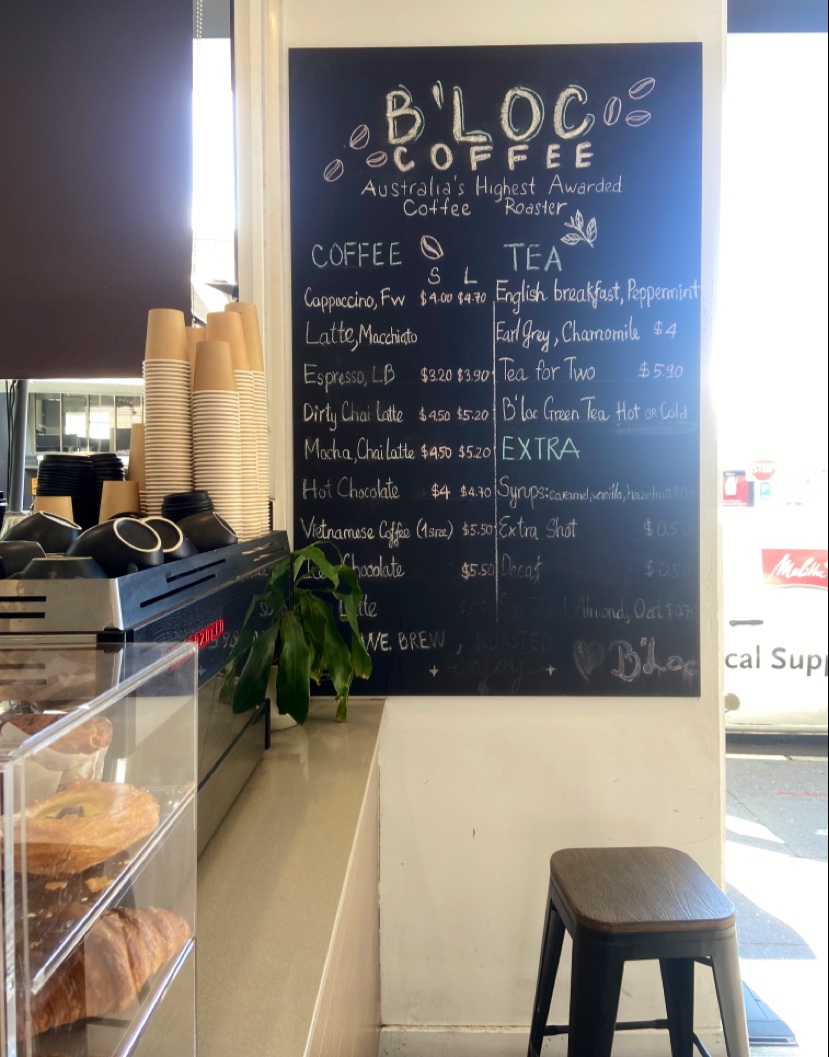 B'LOC
COFFEE
Australia's Highest Awarded
Coffee Roaster
COFFEE
S L
Cappuccino, FW $4.00 $4.70
Latte, Macchiato
Espresso, LB $3.20 $3.90
Dirty Chai Latte $4.50 $5.20
Mocha, Chai Latte $4.50 $5.20
Hot Chocolate $4 $4.70
Vietnamese Coffee (1 size) $5.50
Chocolate $5.50
TEA
English breakfast, Peppermint
Earl Grey, Chamomile $4
Tea for Two $5.90
B'loc Green Tea Hot or Cold
EXTRA
Syrups: caramel, vanilla, hazelnut
Extra Shot $0.50
Decaf $0.50
Almond, Oat $0.70
WE BREW, ROASTED
enjoy B'Loc
STOP
Melitta
cal Supp